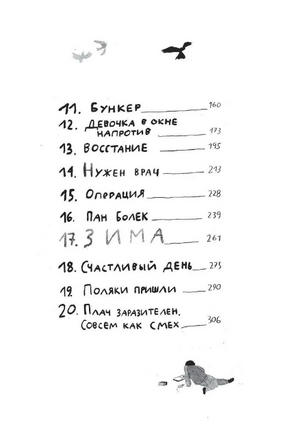 11. Бункер 160
12. Девочка в окне
напротив 173
13. Восстание 195
14. Нужен врач 213
15. Операция 228
16. Пан Болек 239
17. ЗИМА 261
18. Счастливый день 275
19. Поляки пришли 290
20. Плач заразителен,
совсем как смех 306